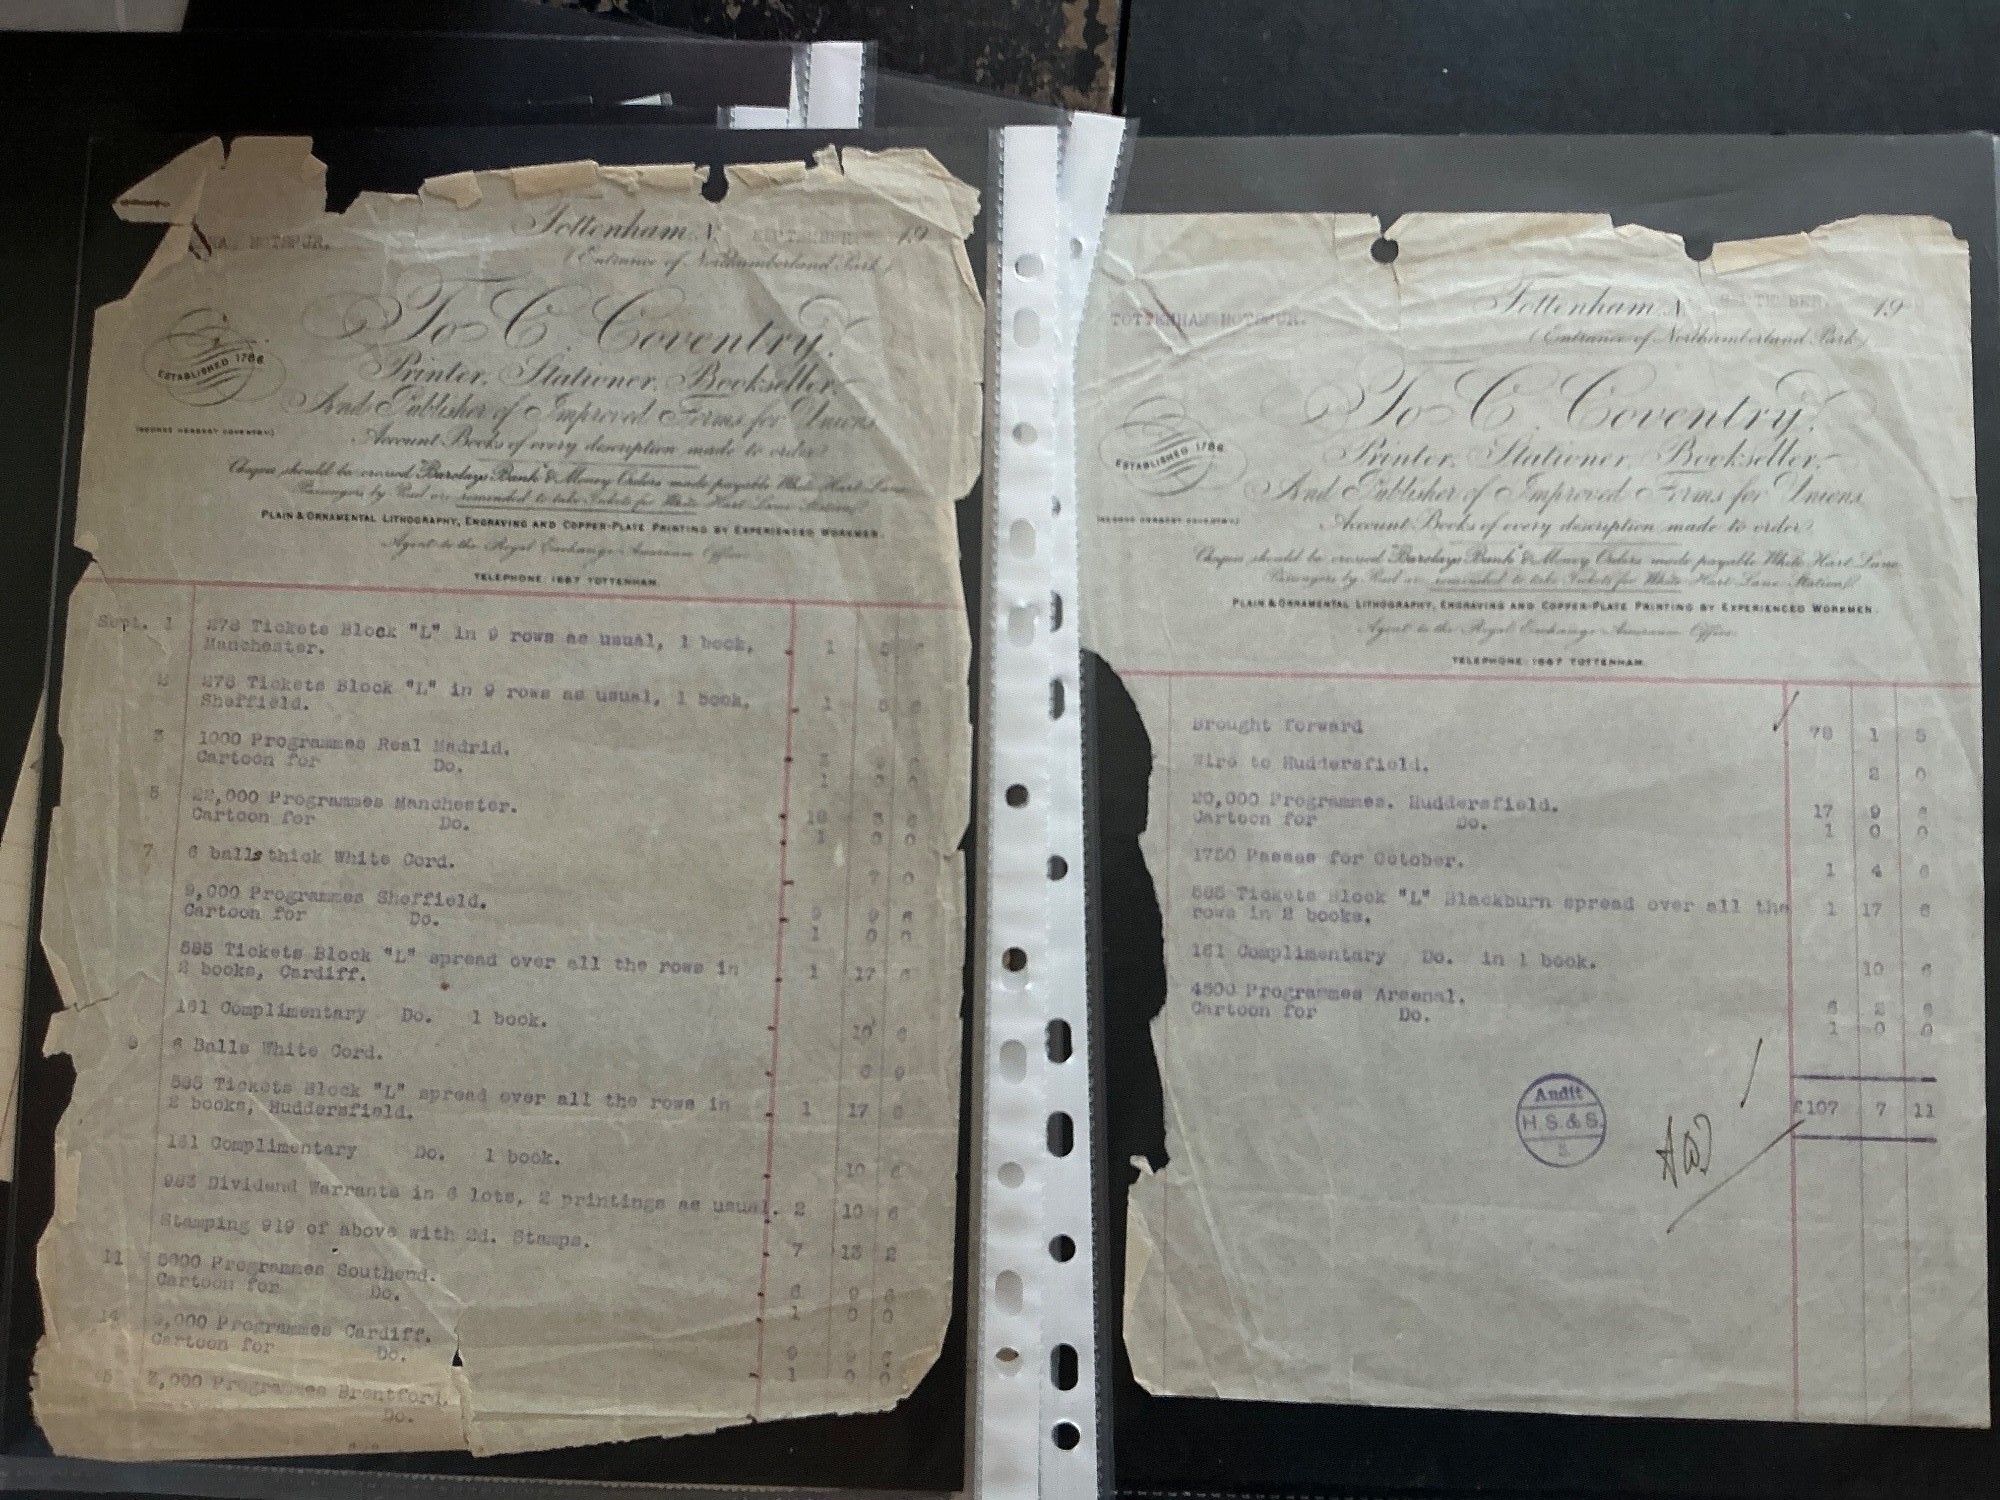 HOTSPUR.
Tottenham N. SEPTEMBER. 19
(Entrance of Northumberland Park)
To C. Coventry,
ESTABLISHED 1786
Printer, Stationer, Bookseller,
And Publisher of Improved Forms for Unions
(GEORGE HERBERT COVENTRY.)
Account Books of every description made to order
Cheques should be crossed "Barclays Bank" & Money Orders made payable White Hart Lane
Passengers by Rail are reminded to take Tickets for White Hart Lane Station
PLAIN & ORNAMENTAL LITHOGRAPHY, ENGRAVING AND COPPER-PLATE PRINTING BY EXPERIENCED WORKMEN.
Agent to the Royal Exchange Assurance Office
TELEPHONE: 1667 TOTTENHAM.
Sept. 1 278 Tickets Block "L" in 9 rows as usual, 1 book,
Manchester. 1 5
2 278 Tickets Block "L" in 9 rows as usual, 1 book,
Sheffield. 1 5
3 1000 Programmes Real Madrid.
Cartoon for Do. 1
5 22,000 Programmes Manchester.
Cartoon for Do. 1 0 0
7 6 balls thick White Cord. 7 0
9,000 Programmes Sheffield. 9 9 6
Cartoon for Do. 1 0 0
585 Tickets Block "L" spread over all the rows in
2 books, Cardiff. 1 17 6
161 Complimentary Do. 1 book. 10 6
8 6 Balls White Cord. 6 9
585 Tickets Block "L" spread over all the rows in
2 books, Huddersfield. 1 17 6
161 Complimentary Do. 1 book. 10 6
963 Dividend Warrants in 6 lots, 2 printings as usual. 2 10 6
Stamping 919 of above with 2d. Stamps. 7 13 2
11 5000 Programmes Southend. 6 9 6
Cartoon for Do. 1 0 0
9,000 Programmes Cardiff. 9 9 6
Cartoon for Do. 1 0 0
,000 Programmes Brentford.
Do.
TOTTENHAM HOTSPUR.
Tottenham N. SEPTEMBER. 19
(Entrance of Northumberland Park)
To C. Coventry,
ESTABLISHED 1786
Printer, Stationer, Bookseller,
And Publisher of Improved Forms for Unions
(GEORGE HERBERT COVENTRY.)
Account Books of every description made to order
Cheques should be crossed "Barclays Bank" & Money Orders made payable White Hart Lane
Passengers by Rail are reminded to take Tickets for White Hart Lane Station
PLAIN & ORNAMENTAL LITHOGRAPHY, ENGRAVING AND COPPER-PLATE PRINTING BY EXPERIENCED WORKMEN.
Agent to the Royal Exchange Assurance Office
TELEPHONE: 1667 TOTTENHAM.
Brought forward 78 1 5
Wire to Huddersfield. 2 0
20,000 Programmes. Huddersfield. 17 9 6
Cartoon for Do. 1 0 0
1750 Passes for October. 1 4 6
585 Tickets Block "L" Blackburn spread over all the
rows in 2 books. 1 17 6
161 Complimentary Do. in 1 book. 10 6
4500 Programmes Arsenal. 6 2 6
Cartoon for Do. 1 0 0
£107 7 11
Audit
H.S.&S.